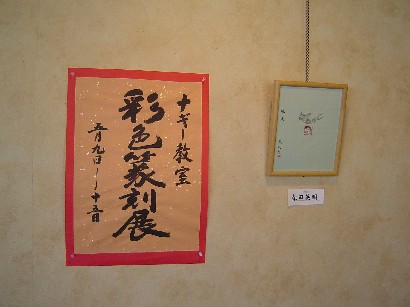 ナギー教室
彩色篆刻展
五月九日〜十五日